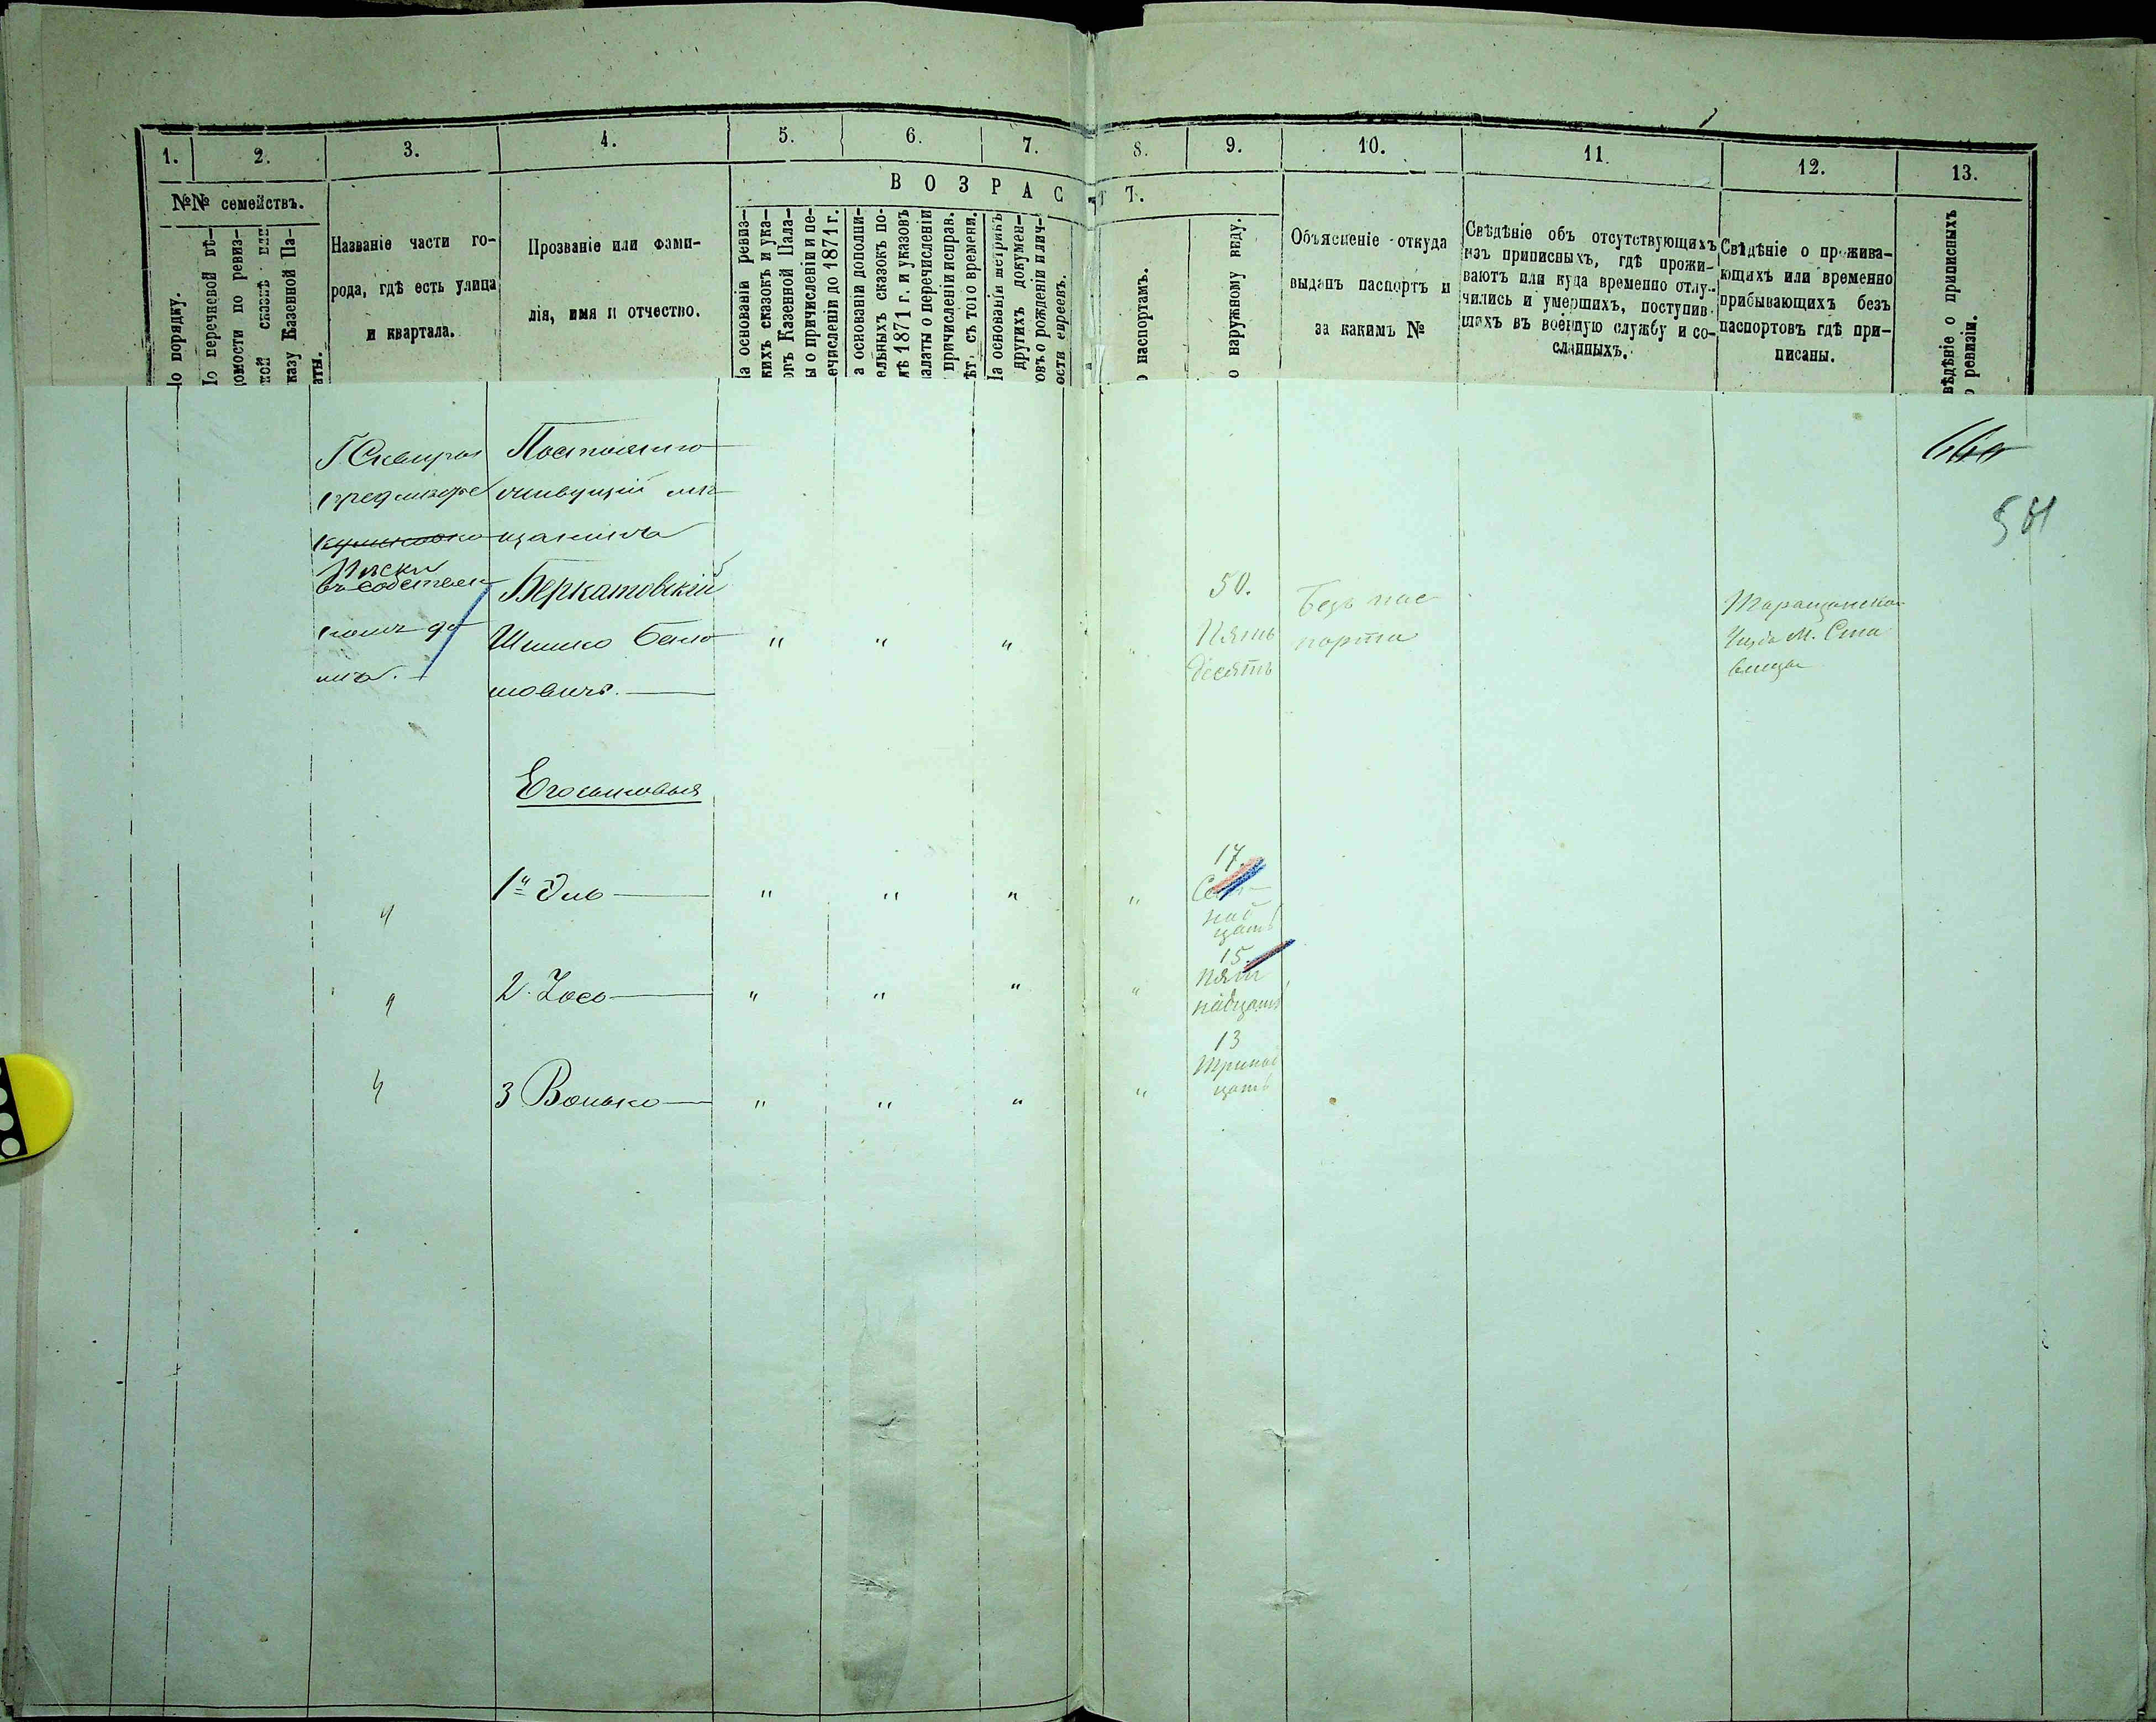 1. 2. 3. 4. 5. 6. 7. 8. 9. 10. 11. 12. 13.
№№ семействъ.
По порядку.
По перечневой вѣ-
домости по ревиз-
ской сказкѣ или
указу Казенной Па-
латы.
Названіе части го-
рода, гдѣ есть улица
и квартала.
Прозваніе или фами-
лія, имя и отчество.
ВОЗРАСТЪ.
На основаніи ревиз-
скихъ сказокъ и ука-
зовъ Казенной Пала-
ты о причисленіи и пе-
речисленіи до 1871 г.
На основаніи дополни-
тельныхъ сказокъ по-
слѣ 1871 г. и указовъ
Палаты о перечисленіи
и причисленіи исправ.
лѣтъ съ того времени.
На основаніи метрикъ
и другихъ докумен-
товъ о рожденіи и лич-
ности евреевъ.
По паспортамъ.
По наружному виду.
Объясненіе откуда
выданъ паспортъ и
за какимъ №
Свѣдѣніе объ отсутствующихъ
изъ приписныхъ, гдѣ прожи-
ваютъ или куда временно отлу-
чились и умершихъ, поступив-
шихъ въ военную службу и со-
сланныхъ.
Свѣдѣніе о прожива-
ющихъ или временно
прибывающихъ безъ
паспортовъ гдѣ при-
писаны.
Свѣдѣніе о приписныхъ
по ревизіи.
Г. Сквира
предмѣстье
Пѣски
въ собствен
номъ до
мѣ.
Постоянно
живущій мѣ
щанинъ
Беркатовскій
Шишко Бень
" " " "
50.
Пять
десятъ
Безъ пас
порта
Таращанскаго
Уѣзда М. Ста
вищи
501
Его сыновья
" 1й Эль " " " "
17.
над
цать
" 2. Іось " " " "
15.
Пят
надцать
" 3 Волько " " " "
13
Тринад
цать